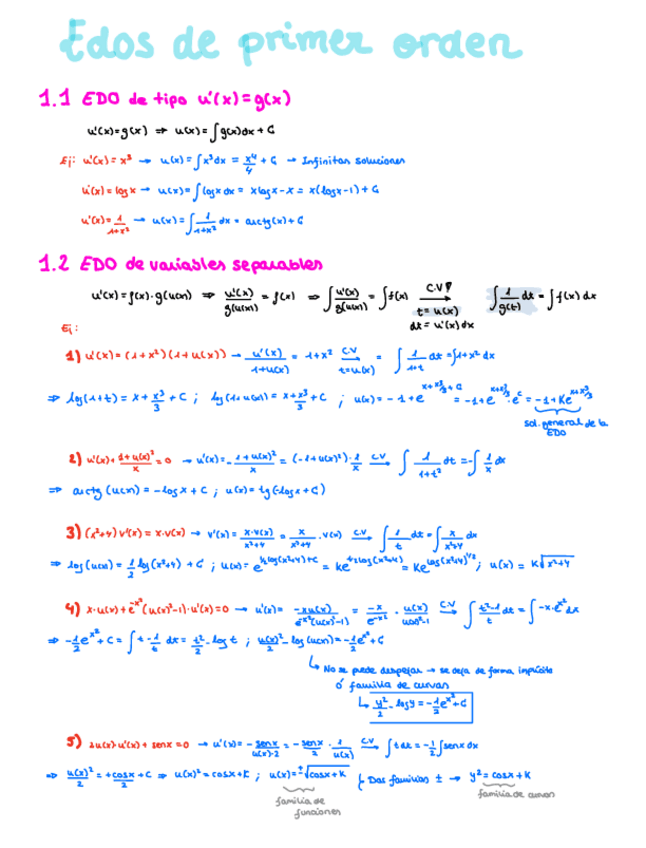 Edos de primer orden
1.1 EDO de tipo u'(x)=g(x)
u'(x)=g(x) ⇒ u(x)=∫g(x)dx+C
Ej: u'(x)=x³ → u(x)=∫x³dx = x⁴/4 + C → Infinitas soluciones
u'(x)=log x → u(x)=∫log x dx = x log x - x = x(log x-1)+C
u'(x)=1/1+x² → u(x)=∫1/1+x² dx = arctg(x)+C
1.2 EDO de variables separables
u'(x)=f(x)·g(u(x)) ⇒ u'(x)/g(u(x)) = f(x) ⇒ ∫u'(x)/g(u(x)) = ∫f(x) C.V → ∫1/g(t) dt = ∫f(x) dx
t=u(x)
dt=u'(x)dx
Ej:
1) u'(x)=(1+x²)(1+u(x)) → u'(x)/1+u(x) = 1+x² C.V → t=u(x) = ∫1/1+t dt=∫1+x² dx
⇒ log(1+t)=x+x³/3+C ; log(1+u(x))=x+x³/3+C ; u(x)=-1+e^x+x³/3+C = -1+e^x+x³/3·e^c = -1+Ke^x+x³/3
sol. general de la
EDO
2) u'(x)+1+u(x)²/x=0 → u'(x)=-1+u(x)²/x = (-1+u(x)²)·1/x C.V → ∫1/1+t² dt=-∫1/x dx
⇒ arctg(u(x))=-log x+C ; u(x)=tg(-log x+C)
3) (x²+4)u'(x)=x·u(x) → u'(x)=x·u(x)/x²+4 = x/x²+4·u(x) C.V → ∫1/t dt=∫x/x²+4 dx
⇒ log(u(x))=1/2 log(x²+4)+C ; u(x)=e^1/2log(x²+4)+C = Ke^1/2log(x²+4) = Ke^log(x²+4)^1/2 ; u(x)=K√x²+4
4) x·u(x)+e^-x²(u(x)²-1)·u'(x)=0 → u'(x)=-xu(x)/e^-x²(u(x)²-1) = -x/e^-x²·u(x)/u(x)²-1 C.V → ∫t²-1/t dt=∫-x·e^x²dx
⇒ -1/2e^x²+C=∫t-1/t dt=t²/2-log t ; u(x)²/2-log(u(x))=-1/2e^x²+C
↳ No se puede despejar → se deja de forma implícita
ó familia de curvas
↳ y²/2-log y=-1/2e^x²+C
5) 2u(x)·u'(x)+senx=0 → u'(x)=-senx/u(x)·2=-senx/2·1/u(x) C.V → ∫t dt=-1/2∫senx dx
⇒ u(x)²/2=+cosx/2+C ⇒ u(x)²=cosx+K ; u(x)=±√cosx+K ↳ Dos familias ± → y²=cosx+K
familia de
funciones
familia de curvas